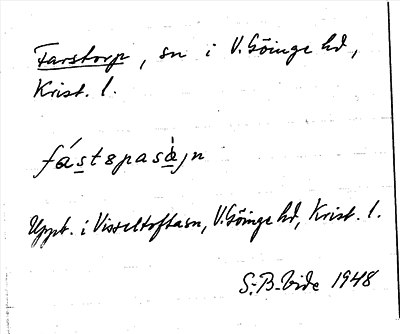 Farstorp, sn i V. Göinge hd,
Krist. l.
fástɞpasàjn
Uppt. i Visseltoftasn, V. Göinge hd, Krist. l.
S.-B. Vide 1948